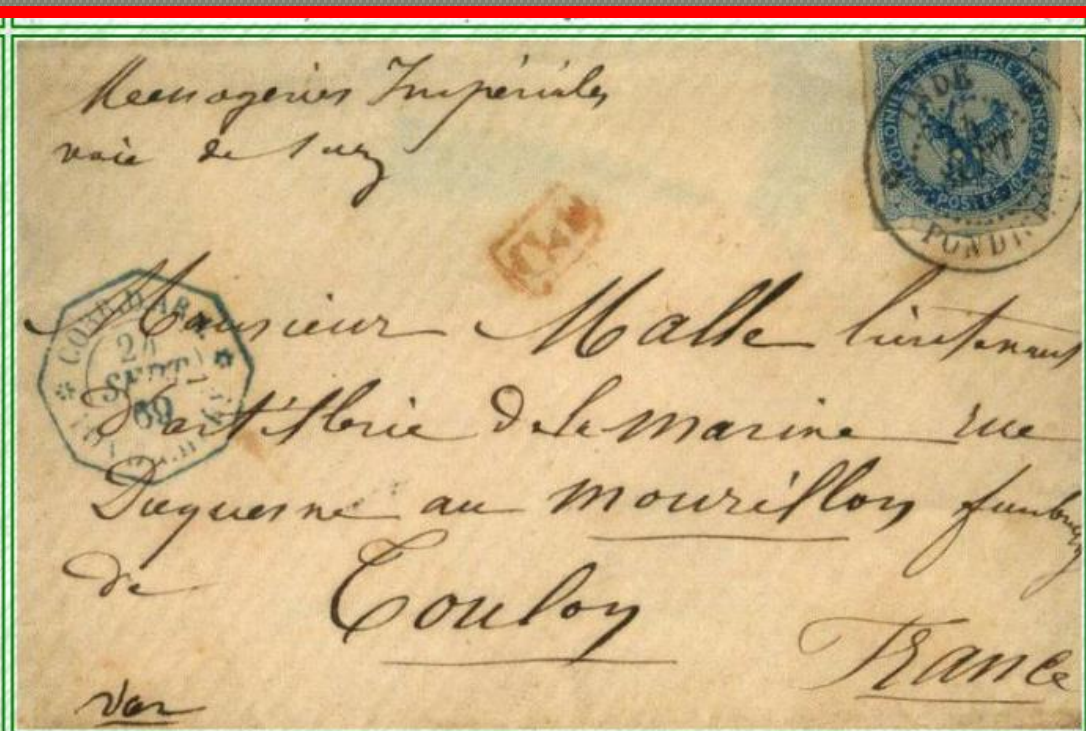 Messageries Impériales
voie de Suez
COLONIES DE L'EMPIRE FRANÇAIS
POSTES
INDE
SEPT
PD
CORR. D. ARM.
24
SEPT
69
Monsieur Malle lieutenant
d'artillerie de la marine rue
Duquesne au Mourillon faubourg
de Toulon
France
Var